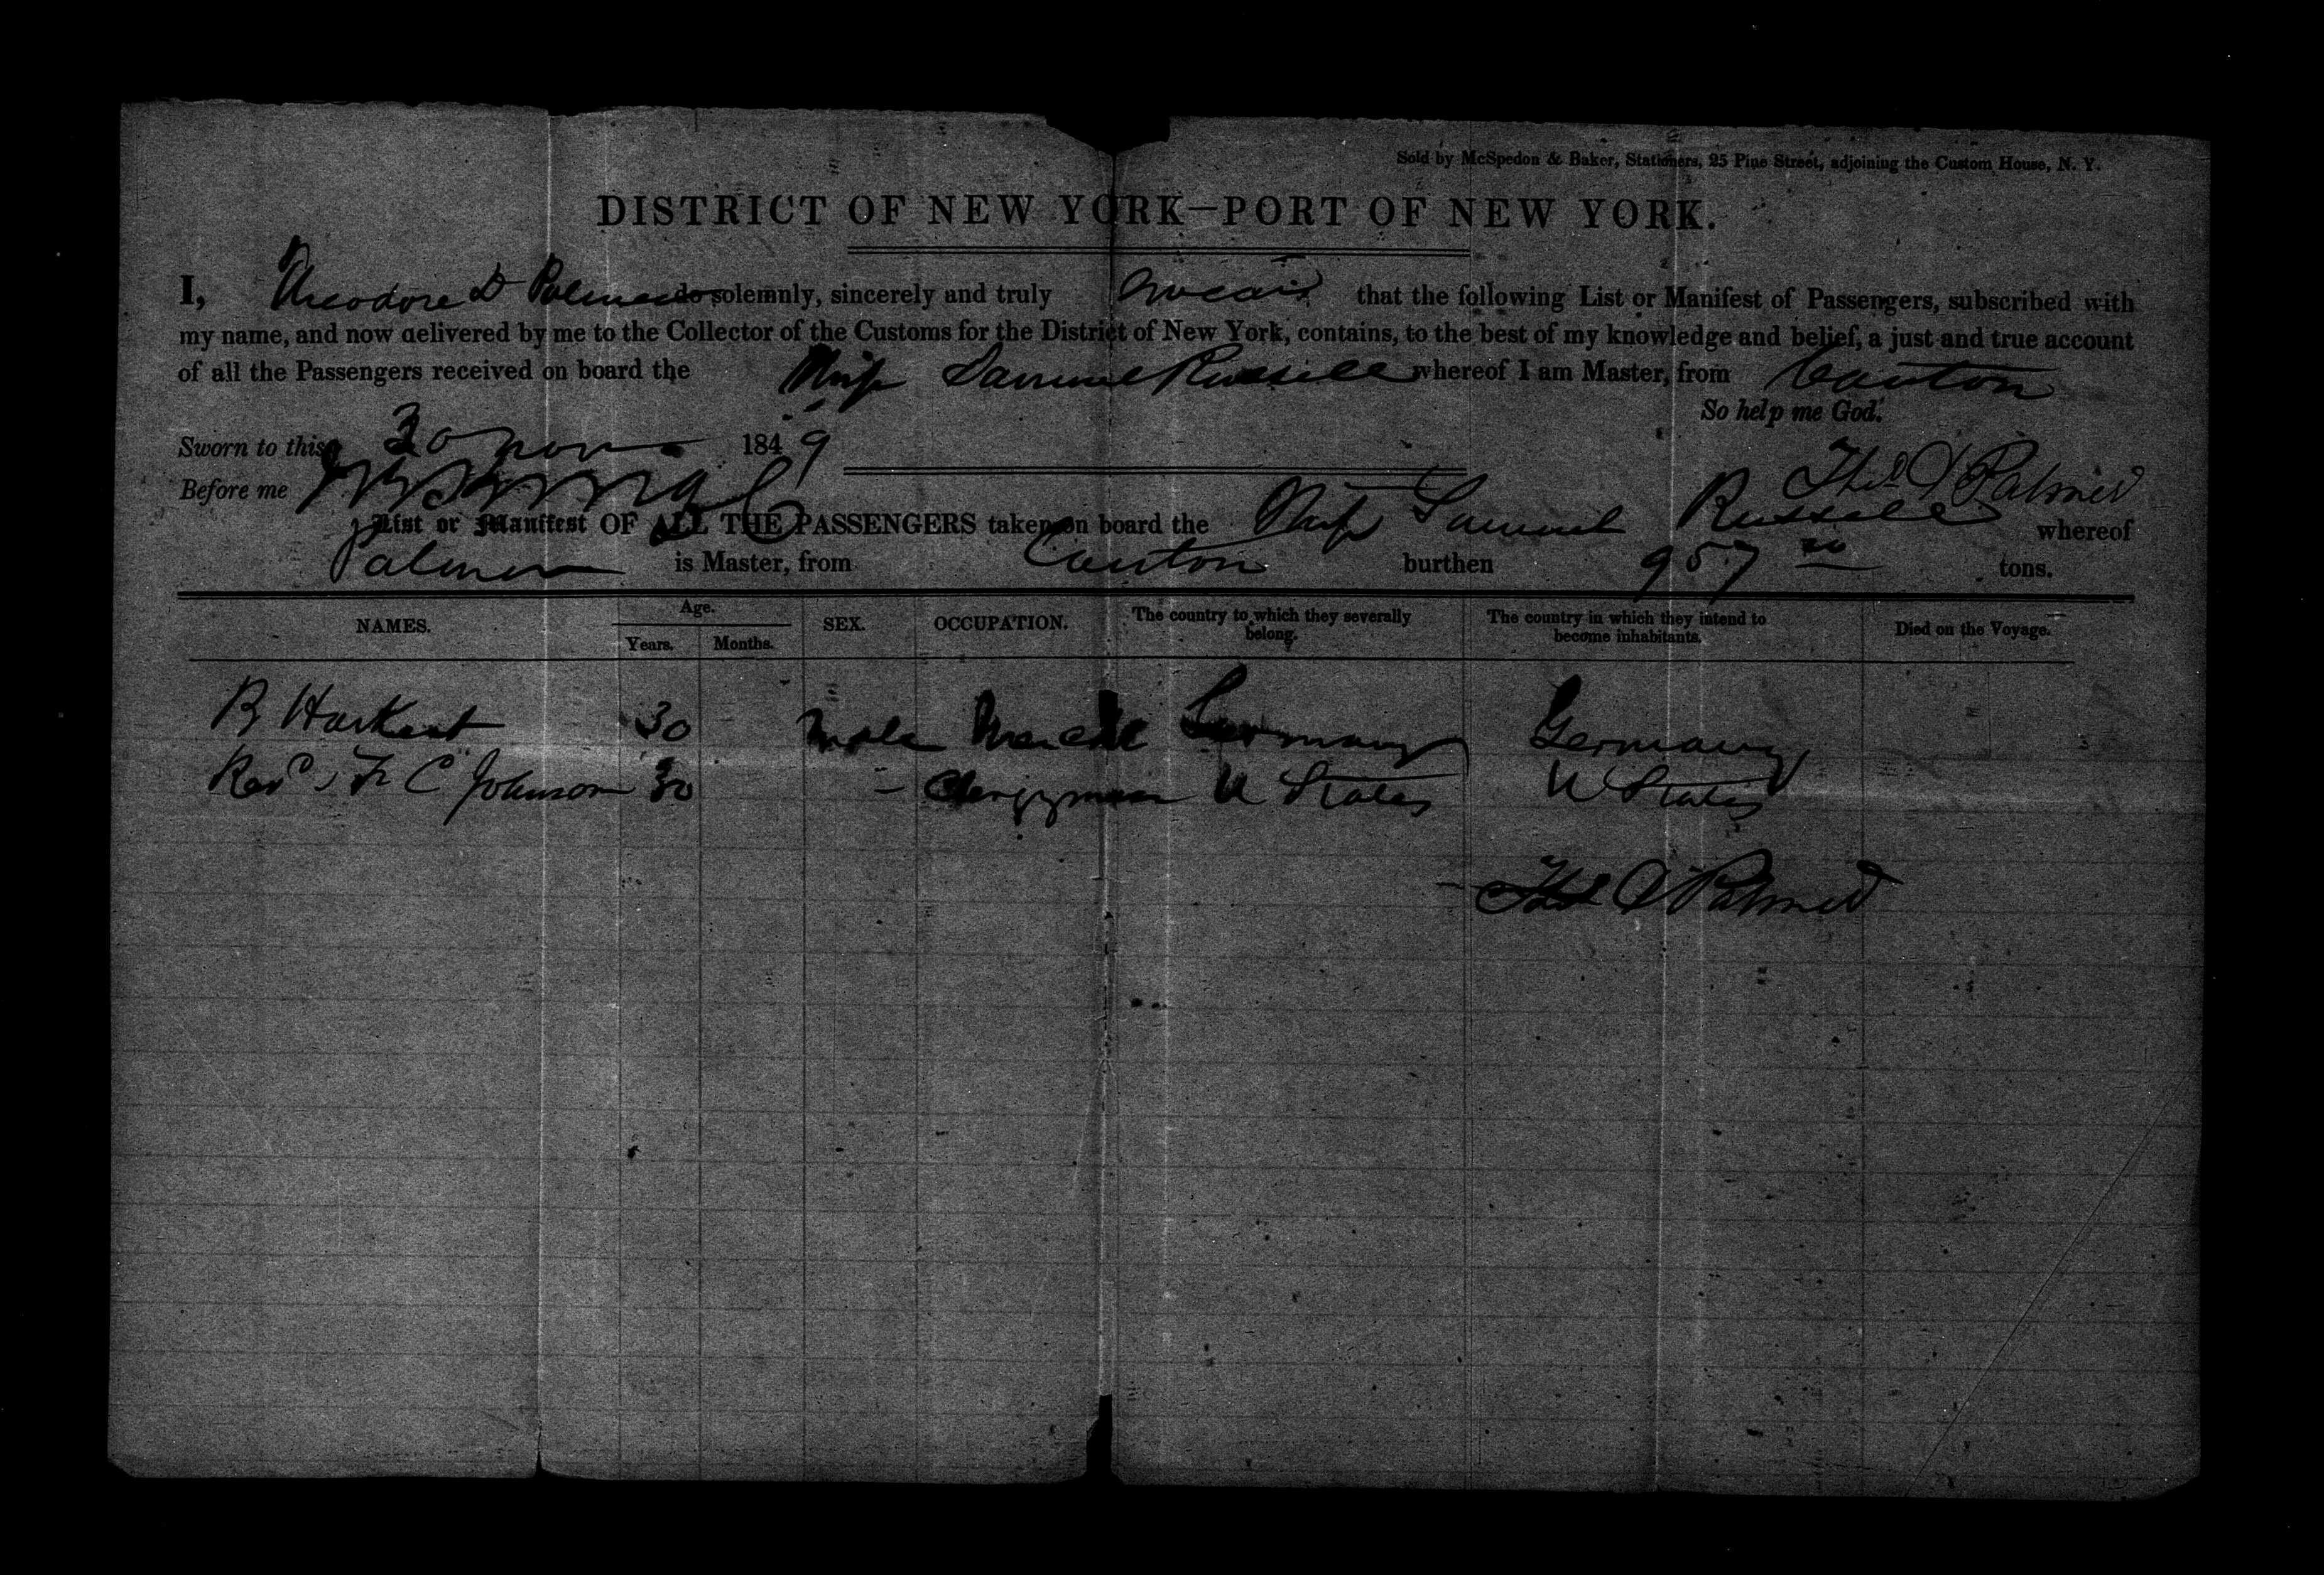 Sold by McSpedon & Baker, Stationers, 25 Pine Street, adjoining the Custom House, N. Y.
DISTRICT OF NEW YORK—PORT OF NEW YORK.
I, Theodore D Palmer do solemnly, sincerely and truly swear that the following List or Manifest of Passengers, subscribed with
my name, and now delivered by me to the Collector of the Customs for the District of New York, contains, to the best of my knowledge and belief, a just and true account
of all the Passengers received on board the Ship Samuel Russell whereof I am Master, from Canton
So help me God.
Sworn to this 30 Nov 1849
Theo D Palmer
Before me
List or Manifest OF ALL THE PASSENGERS taken on board the Ship Samuel Russell whereof
Palmer is Master, from Canton burthen 957 tons.
NAMES. Age. Years. Months. SEX. OCCUPATION. The country to which they severally belong. The country in which they intend to become inhabitants. Died on the Voyage.
R Harkert 30 Male Mercht Germany Germany
Revd F C Johnson 30 - Clergyman U States U States
Theo D Palmer